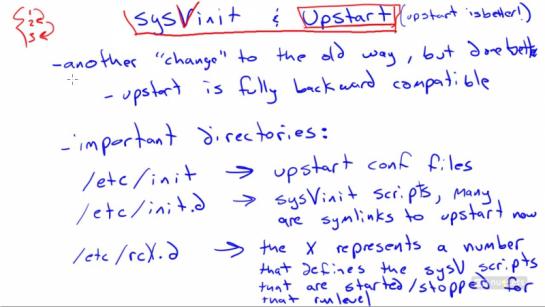 1
2
3
sysVinit & Upstart (upstart is better!)
-another "change" to the old way, but done better
-upstart is fully backward compatible
-important directories:
/etc/init → upstart conf files
/etc/init.d → sysVinit scripts, many
are symlinks to upstart now
/etc/rcX.d → the X represents a number
that defines the sysV scripts
that are started/stopped for
that runlevel